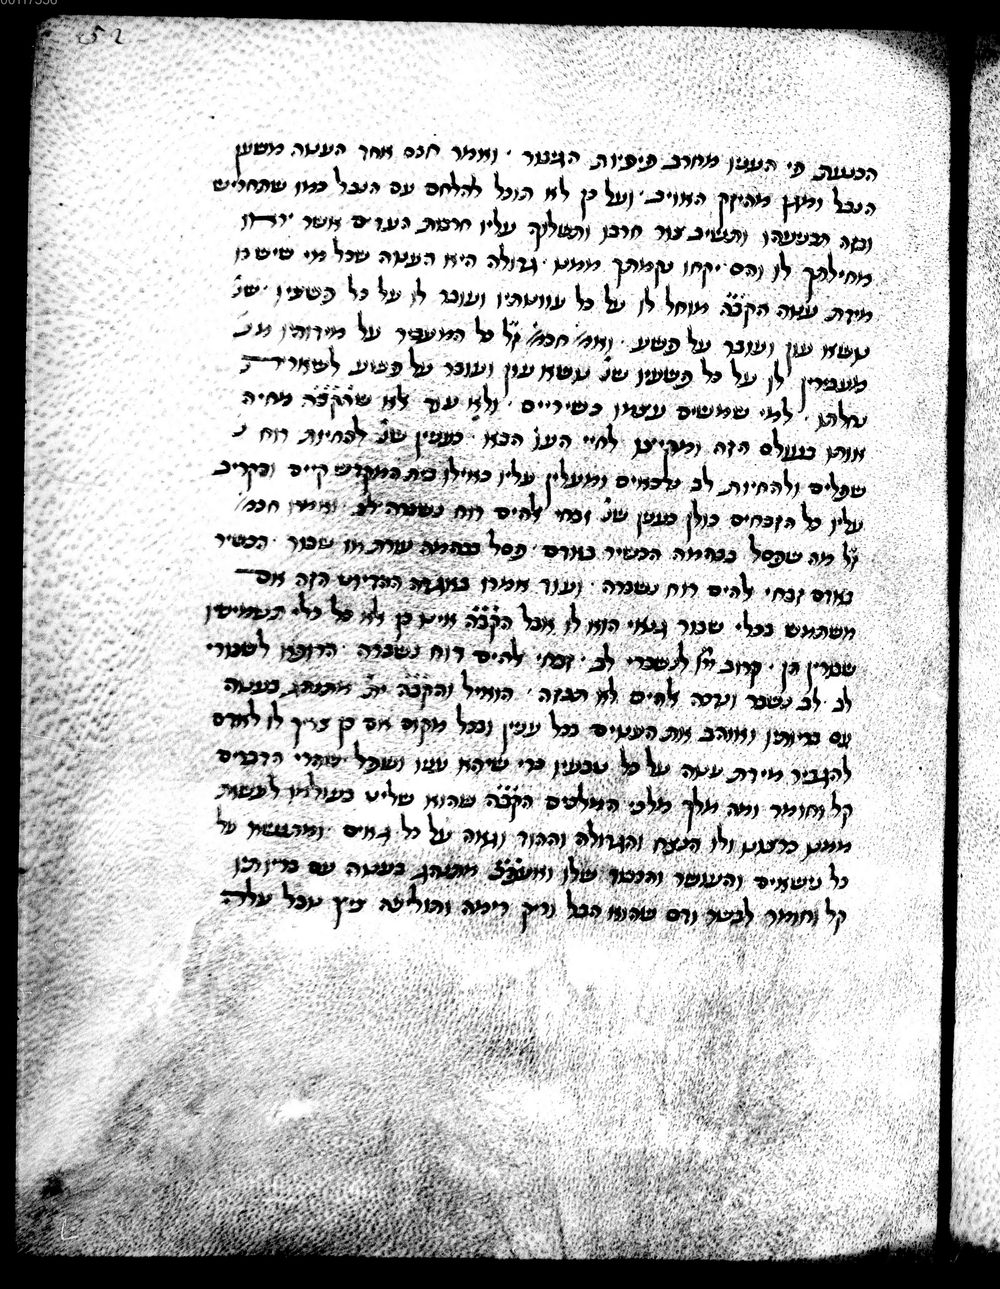 הכנעת פי העניו מחרב פיפיות הגבור ׳ ואמר חכם אחר הענוה משען
הנבל ומגן מהיזק האויב ׳ ועל כן לא תוכל להלחם עם הנבל כמו שתחריש
ובזה תכניעהו ותשיב צור חרבו ותשליך עליו חרפת העדים אשר
מחילתך לו והם יקחו נקמתך ממנו ׳ גדולה היא הענוה שכל מי שיש בו
מידת ענוה הקב״ה מוחל לו על כל עוונותיו ועובר לו על כל פשעיו ׳ שנ׳
נושא עון ועובר על פשע ׳ ואמ׳ חכמ׳ ז״ל כל המעביר על מידותיו
מעבירין לו על כל פשעיו שנ׳ נושא עון ועובר על פשע לשארית
נחלתו ׳ למי שמשים עצמו כשיריים ׳ ולא עוד אלא שהקב״ה מחיה
אותו בעולם הזה ומקיימו לחיי העו׳ הבא ׳ כענין שנ׳ להחיות רוח
שפלים ולהחיות לב נדכאים ומעלין עליו כאילו בית המקדש קיים והקריב
עליו כל הזבחים כולן כענין שנ׳ זבחי להים רוח נשברה לב ׳ ואמרו חכמ׳
ז״ל מה שפסל בבהמה הכשיר באדם ׳ פסל בבהמה עורת או שבור ׳ הכשיר
באדם זבחי להים רוח נשברה ׳ ועוד אמרו באגדה ההדיוט הזה אם
משתמש בכלי שבור גנאי הוא לו אבל הקב״ה אינו כן אלא כל כלי תשמישו
שבורין הן ׳ קרוב ייי לנשברי לב ׳ זבחי להים רוח נשברה ׳ הרופא לשבורי
לב ׳ לב נשבר ונדכה להים לא תבזה ׳ הואיל והקב״ה ית׳ מתנהג בענוה
עם בריותיו ואוהב את הענוים בכל ענין ובכל מקום אם כן צריך לו לאדם
להגביר מידת ענוה על כל טבעיו כדי שיהא עניו ושפל שהרי הדברים
קל וחומר ומה מלך מלכי המלכים הקב״ה שהוא שליט בעולמו לעשות
ממנו כרצונו ולו הנצח והגדולה וההוד וגאוה על כל גאים ׳ ומתנשא על
כל נשאים והעושר והכבוד שלו ואעפ״כ מתנהג בענוה עם בריותיו
קל וחומר לבשר ודם שהוא הבל וריק רימה ותולעה ציץ נובל עלה